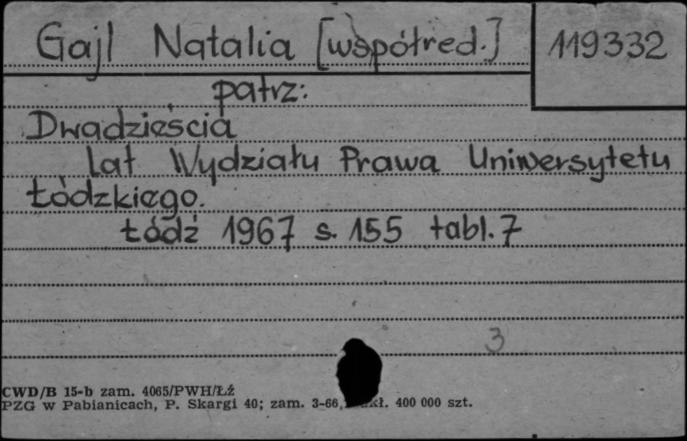 Gajl Natalia [współred.] 119332
patrz:
Dwadzieścia
lat Wydziału Prawa Uniwersytetu
Łódzkiego.
Łódź 1967 s. 155 tabl. 7
3
CWD/B 15-b zam. 4065/PWH/Łź
PZG w Pabianicach, P. Skargi 40; zam. 3-66, kł. 400 000 szt.